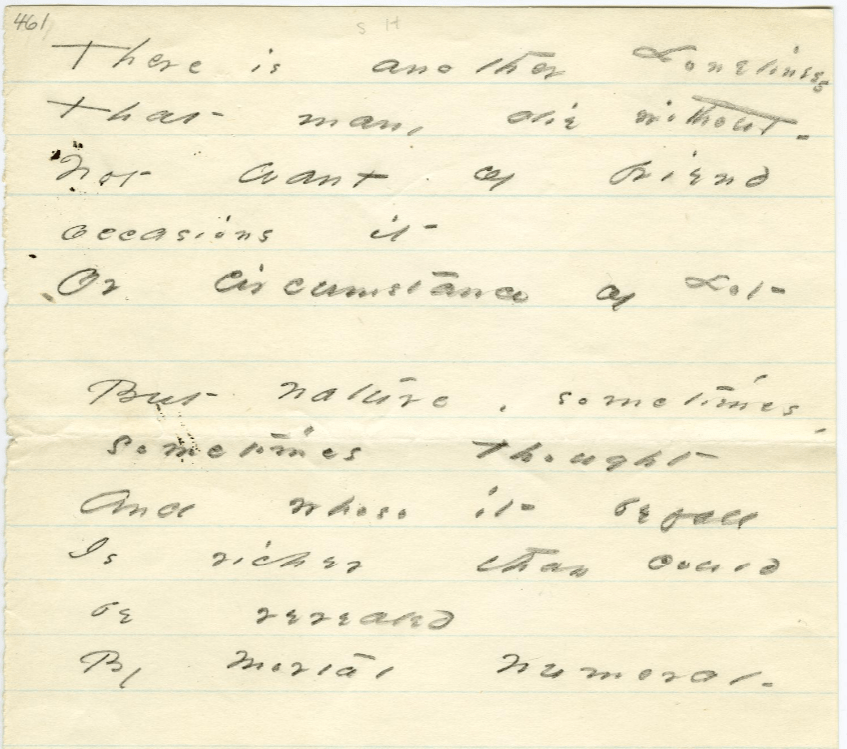 461
S H
There is another Loneliness
That many die without -
Not want of friend
occasions it -
Or circumstance of Lot -
But nature, sometimes,
sometimes thought
And whoso it befall
Is richer than could
be revealed
By mortal numeral -